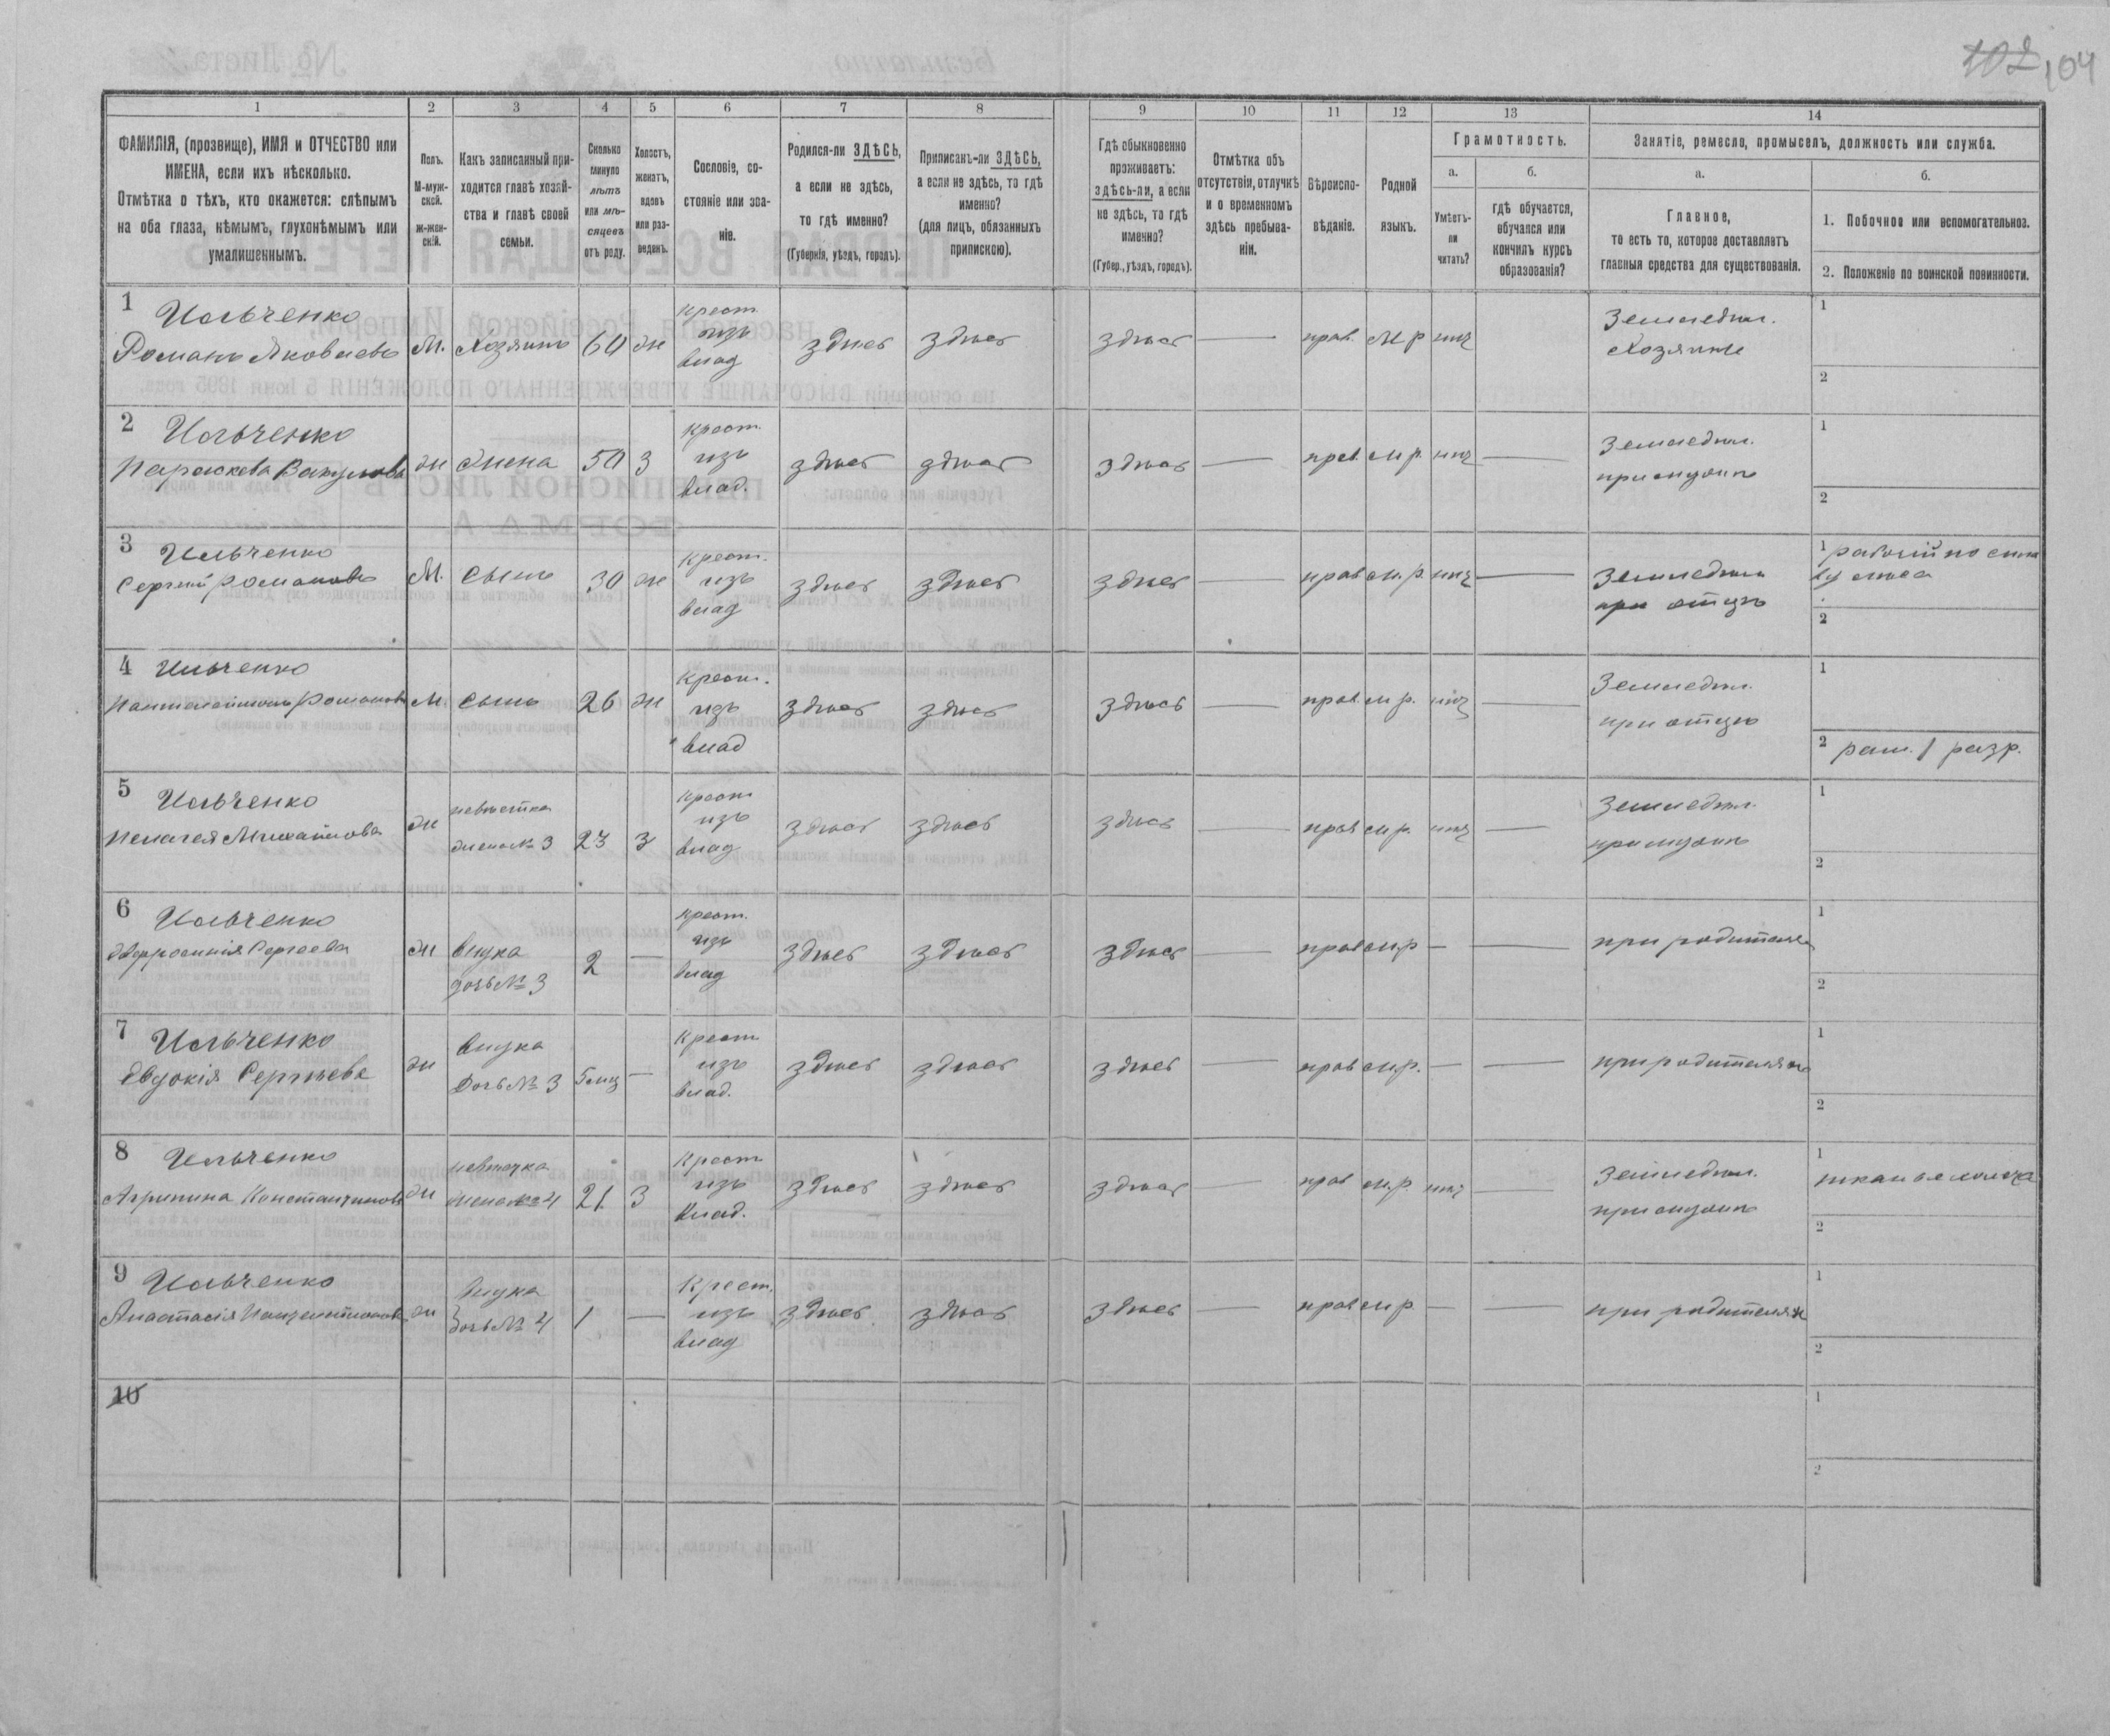 102 104
1 2 3 4 5 6 7 8 9 10 11 12 13 14
ФАМИЛІЯ, (прозвище), ИМЯ и ОТЧЕСТВО или
ИМЕНА, если ихъ нѣсколько.
Отмѣтка о тѣхъ, кто окажется: слѣпымъ
на оба глаза, нѣмымъ, глухонѣмымъ или
умалишеннымъ.
Полъ.
М-муж-
ской.
Ж-жен-
скій.
Какъ записанный при-
ходится главѣ хозяй-
ства и главѣ своей
семьи.
Сколько
минуло
лѣтъ
или мѣ-
сяцевъ
отъ роду.
Холостъ,
женатъ,
вдовъ
или раз-
веденъ.
Сословіе, со-
стояніе или зва-
ніе.
Родился-ли ЗДѢСЬ,
а если не здѣсь,
то гдѣ именно?
(Губернія, уѣздъ, городъ).
Приписанъ-ли ЗДѢСЬ,
а если не здѣсь, то гдѣ
именно?
(для лицъ, обязанныхъ
припискою).
Гдѣ обыкновенно
проживаетъ:
здѣсь-ли, а если
не здѣсь, то гдѣ
именно?
(Губер., уѣздъ, городъ).
Отмѣтка объ
отсутствіи, отлучкѣ
и о временномъ
здѣсь пребыва-
ніи.
Вѣроиспо-
вѣданіе.
Родной
языкъ.
Грамотность.
а.
Умѣетъ-
ли
читать?
б.
гдѣ обучается,
обучался или
кончилъ курсъ
образованія?
Занятіе, ремесло, промыселъ, должность или служба.
а.
Главное,
то есть то, которое доставляетъ
главныя средства для существованія.
б.
1. Побочное или вспомогательное.
2. Положеніе по воинской повинности.
1 Ильченко
Романъ Яковлевъ
М. Хозяинъ 64 ж
Крест
изъ
влад
здѣсь здѣсь здѣсь — прав. м р нѣт
Земледѣл.
Хозяинъ
1
2
2 Ильченко
Параскева
ж жена 50 З
Крест.
изъ
влад.
здѣсь здѣсь здѣсь — прав. м р. нѣт —
Земледѣл.
при мужѣ
1
2
3 Ильченко
Сергѣй Романовъ
М. сынъ 30 ж
Крест.
изъ
влад
здѣсь здѣсь здѣсь — прав м. р. нѣт —
Земледѣл
при отцѣ
1 рабочій по
лѣса
2
4 Ильченко
Пантелеймонъ Романовъ
М. сынъ 26 ж
Крест.
изъ
влад
здѣсь здѣсь здѣсь — прав. м р. нѣт —
Земледѣл.
при отцѣ
1
2 рат. 1 разр.
5 Ильченко
Пелагея Михайлова
ж
невѣстка
жена № 3
23 З
Крест
изъ
влад
здѣсь здѣсь здѣсь — прав м р. нѣт —
Земледѣл.
при мужѣ
1
2
6 Ильченко
Евфросинія Сергеева
ж
внука
дочь № 3
2 —
Крест.
изъ
влад
здѣсь здѣсь здѣсь — прав м. р — —
при родителях
1
2
7 Ильченко
Евдокія Сергѣева
ж
внука
дочь № 3
5 мц —
Крест
изъ
влад.
здѣсь здѣсь здѣсь — прав м. р. — —
при родителяхъ
1
2
8 Ильченко
Агрипина Константинова
ж
невѣстка
жена № 4
21 З
Крест
изъ
влад.
здѣсь здѣсь здѣсь — прав м. р. нѣт —
Земледѣл.
при мужѣ
1 тканье холста
2
9 Ильченко
Анастасія Пантелеймонова
ж
внука
дочь № 4
1 —
Крест.
изъ
влад
здѣсь здѣсь здѣсь — прав м р. — —
при родителях
1
2
10
1
2